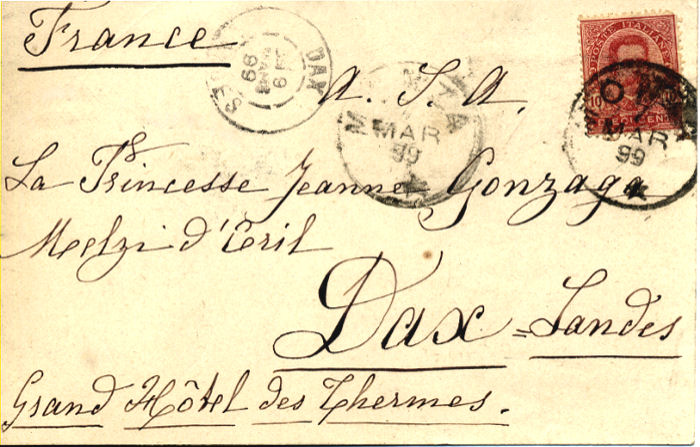 France
A. S. A.
La Pcesse Jeanne Gonzaga
Melzi d'Eril
Dax - Landes
Grand Hôtel des Thermes.
POSTE ITALIANE
10
DAX
9
MARS
99
MAR
99
MAR
99